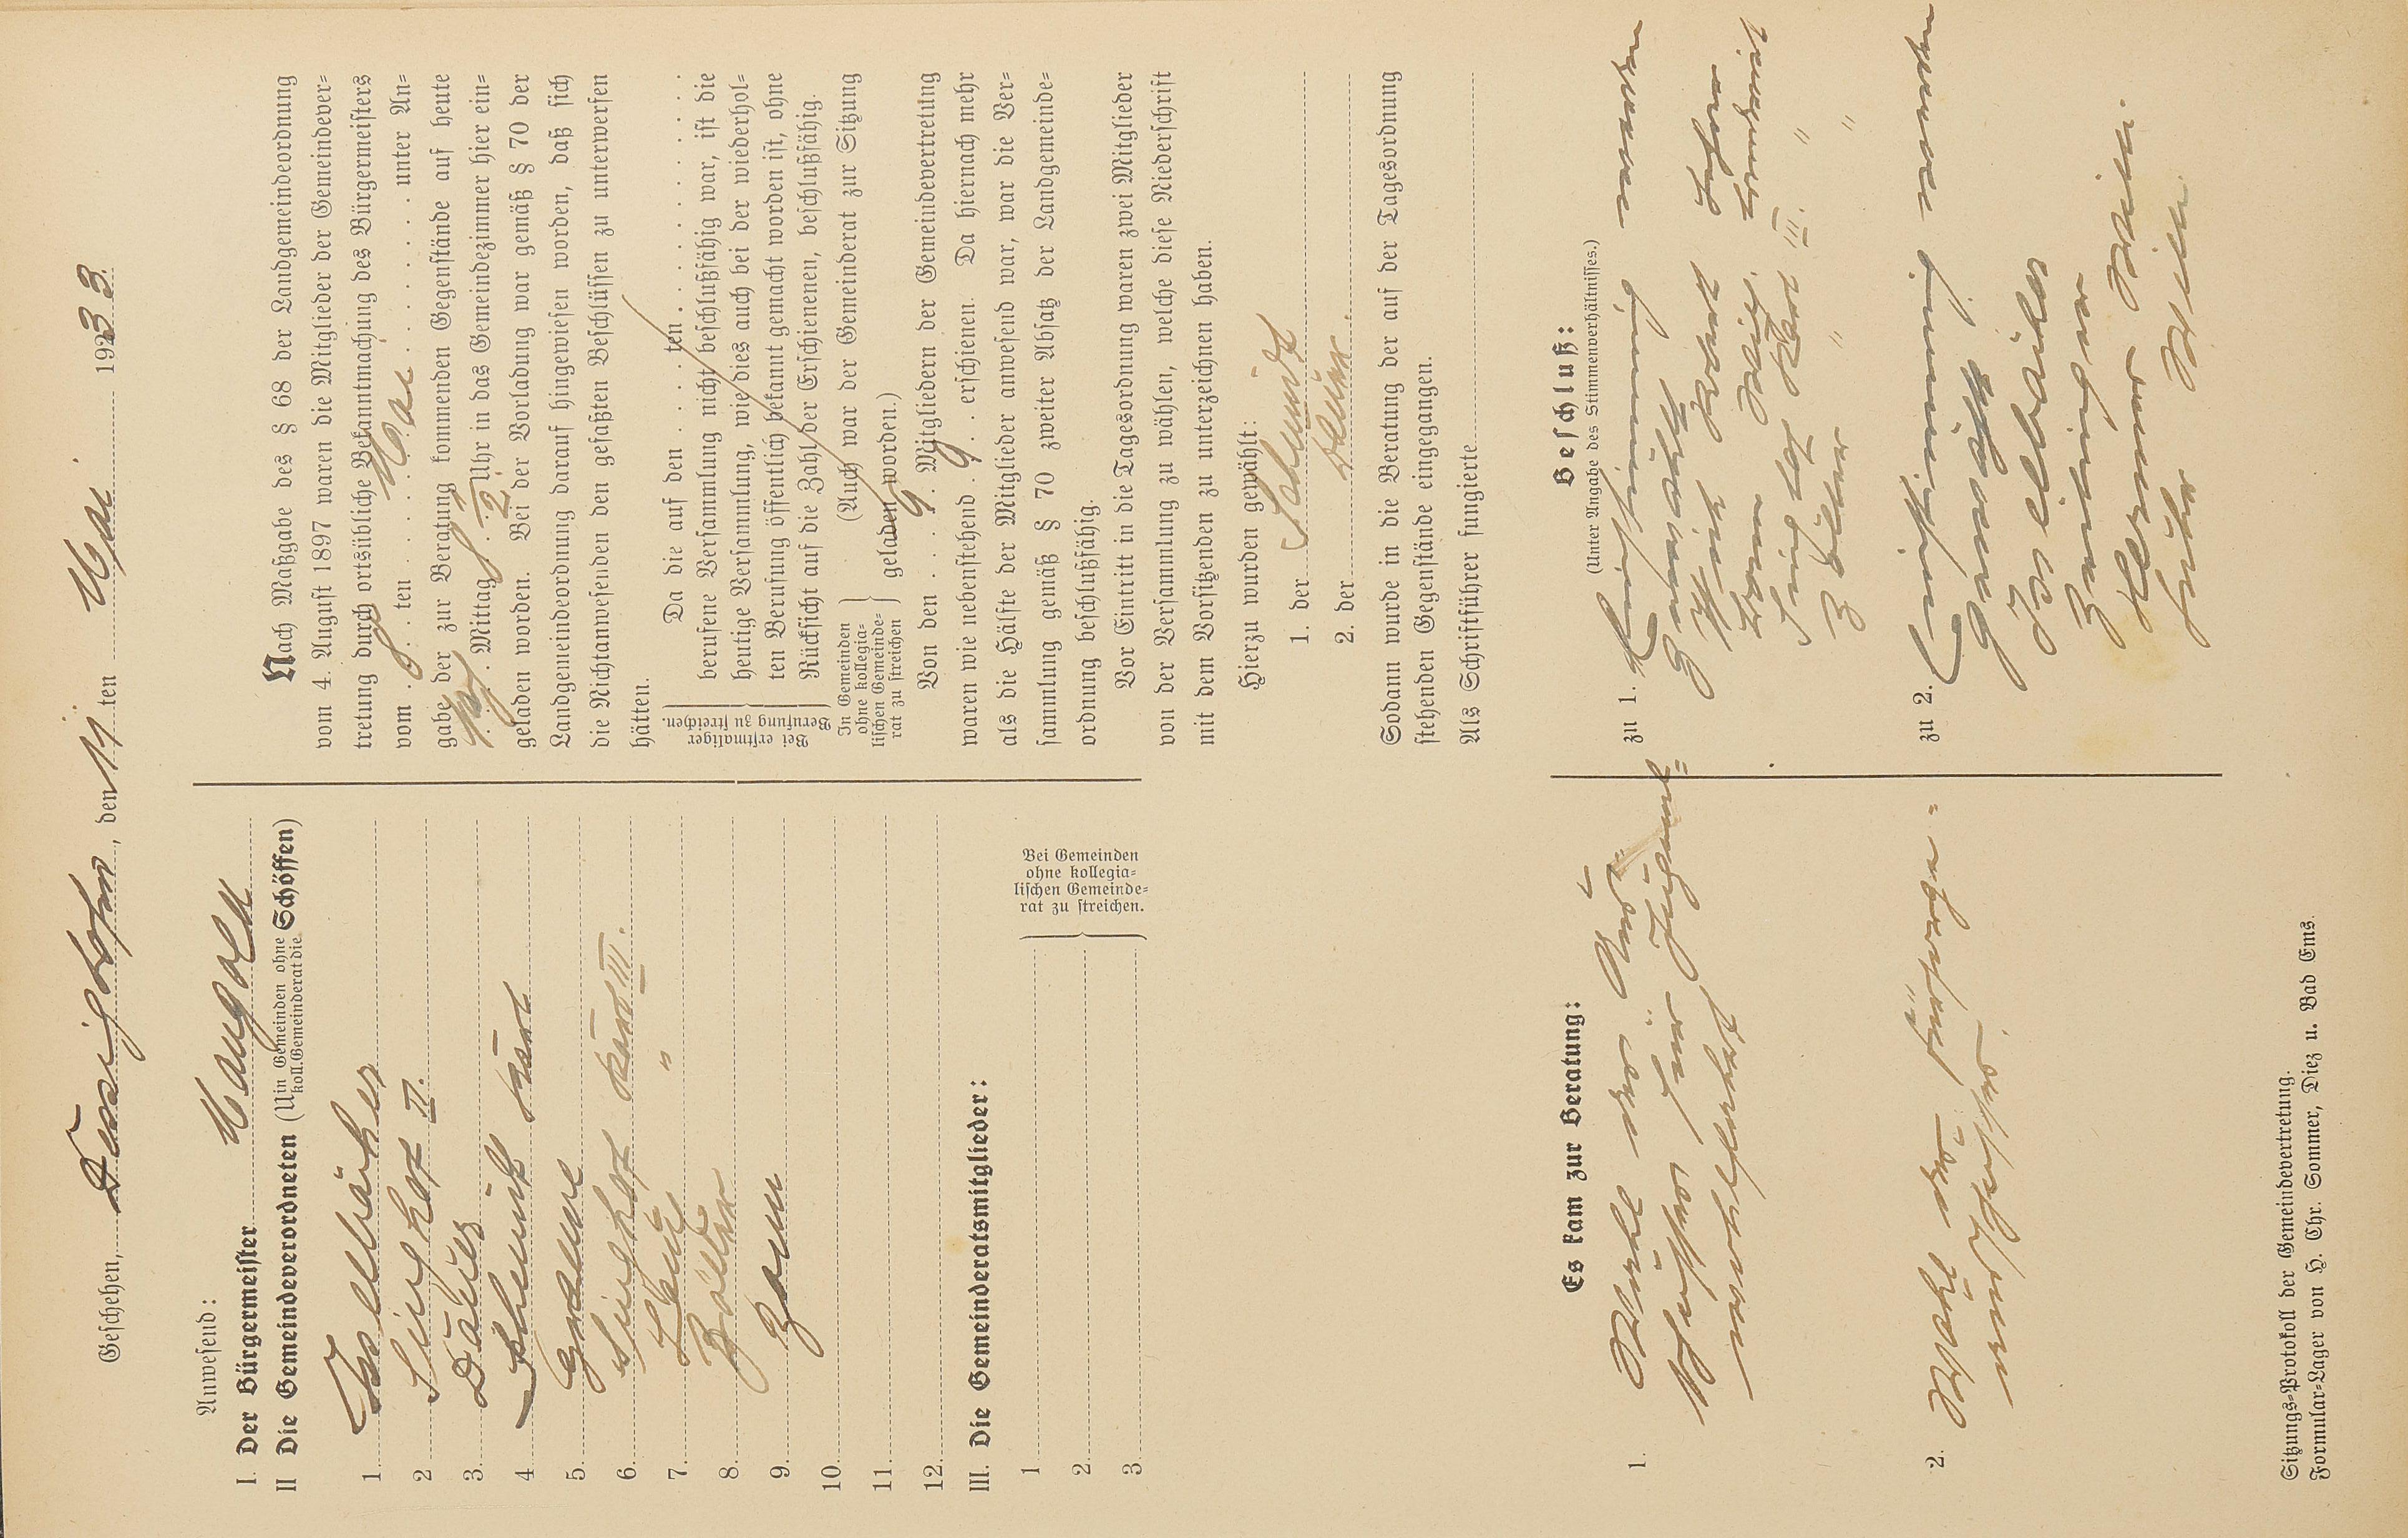 Geschehen, Dessighofen, den 11 ten Mai 1933.
Anwesend:
I. Der Bürgermeister Mangold
II Die Gemeindeverordneten (in Gemeinden ohne koll. Gemeinderat die Schöffen)
1. Isselbächer
2 Singhof II.
3. Däuer
4 Schmidt Karl
5.
6. Singhof Karl III.
7. "
8. Zöller
9.
10.
11.
12.
III. Die Gemeinderatsmitglieder:
1
2.
3.
Bei Gemeinden
ohne kollegia-
lischen Gemeinde-
rat zu streichen.
Nach Maßgabe des § 68 der Landgemeindeordnung
vom 4. August 1897 waren die Mitglieder der Gemeindever-
tretung durch ortsübliche Bekanntmachung des Bürgermeisters
vom 8. ten Mai unter An-
gabe der zur Beratung kommenden Gegenstände auf heute
Mittag Uhr in das Gemeindezimmer hier ein-
geladen worden. Bei der Vorladung war gemäß § 70 der
Landgemeindeordnung darauf hingewiesen worden, daß sich
die Nichtanwesenden den gefaßten Beschlüssen zu unterwerfen
hätten.
Bei erstmaliger
Berufung zu streichen.
Da die auf den . . . . ten . . . . . . . . . .
berufene Versammlung nicht beschlußfähig war, ist die
heutige Versammlung, wie dies auch bei der wiederhol-
ten Berufung öffentlich bekannt gemacht worden ist, ohne
Rücksicht auf die Zahl der Erschienenen, beschlußfähig.
In Gemeinden
ohne kollegia-
lischen Gemeinde-
rat zu streichen
(Auch war der Gemeinderat zur Sitzung
geladen worden.)
Von den . . . 9 . Mitgliedern der Gemeindevertretung
waren wie nebenstehend . 9 . . erschienen. Da hiernach mehr
als die Hälfte der Mitglieder anwesend war, war die Ver-
sammlung gemäß § 70 zweiter Absatz der Landgemeinde-
ordnung beschlußfähig.
Vor Eintritt in die Tagesordnung waren zwei Mitglieder
von der Versammlung zu wählen, welche diese Niederschrift
mit dem Vorsitzenden zu unterzeichnen haben.
Hierzu wurden gewählt:
1. der Schmidt
2. der Däuer.
Sodann wurde in die Beratung der auf der Tagesordnung
stehenden Gegenstände eingegangen.
Als Schriftführer fungierte
Es kam zur Beratung:
1. Wahl der
für
2. Wahl der
und
Beschluß:
(Unter Angabe des Stimmenverhältnisses.)
zu 1. Einstimmig wurden
gewählt
Karl
Singhof Karl III. "
Zöller " "
zu 2. Einstimmig wurden
gewählt
Isselbächer
Hermann Wilh.
Wilh.
Sitzungs-Protokoll der Gemeindevertretung.
Formular-Lager von H. Chr. Sommer, Diez u. Bad Ems.